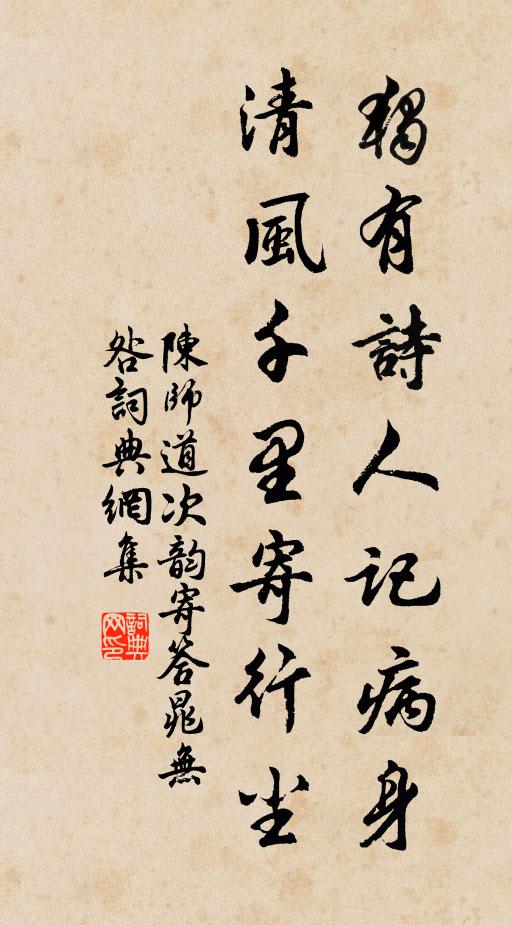 獨有詩人記病身
清風千里寄行尘
陳師道次韵寄答晁無
咎詞典網集
詞典
网印